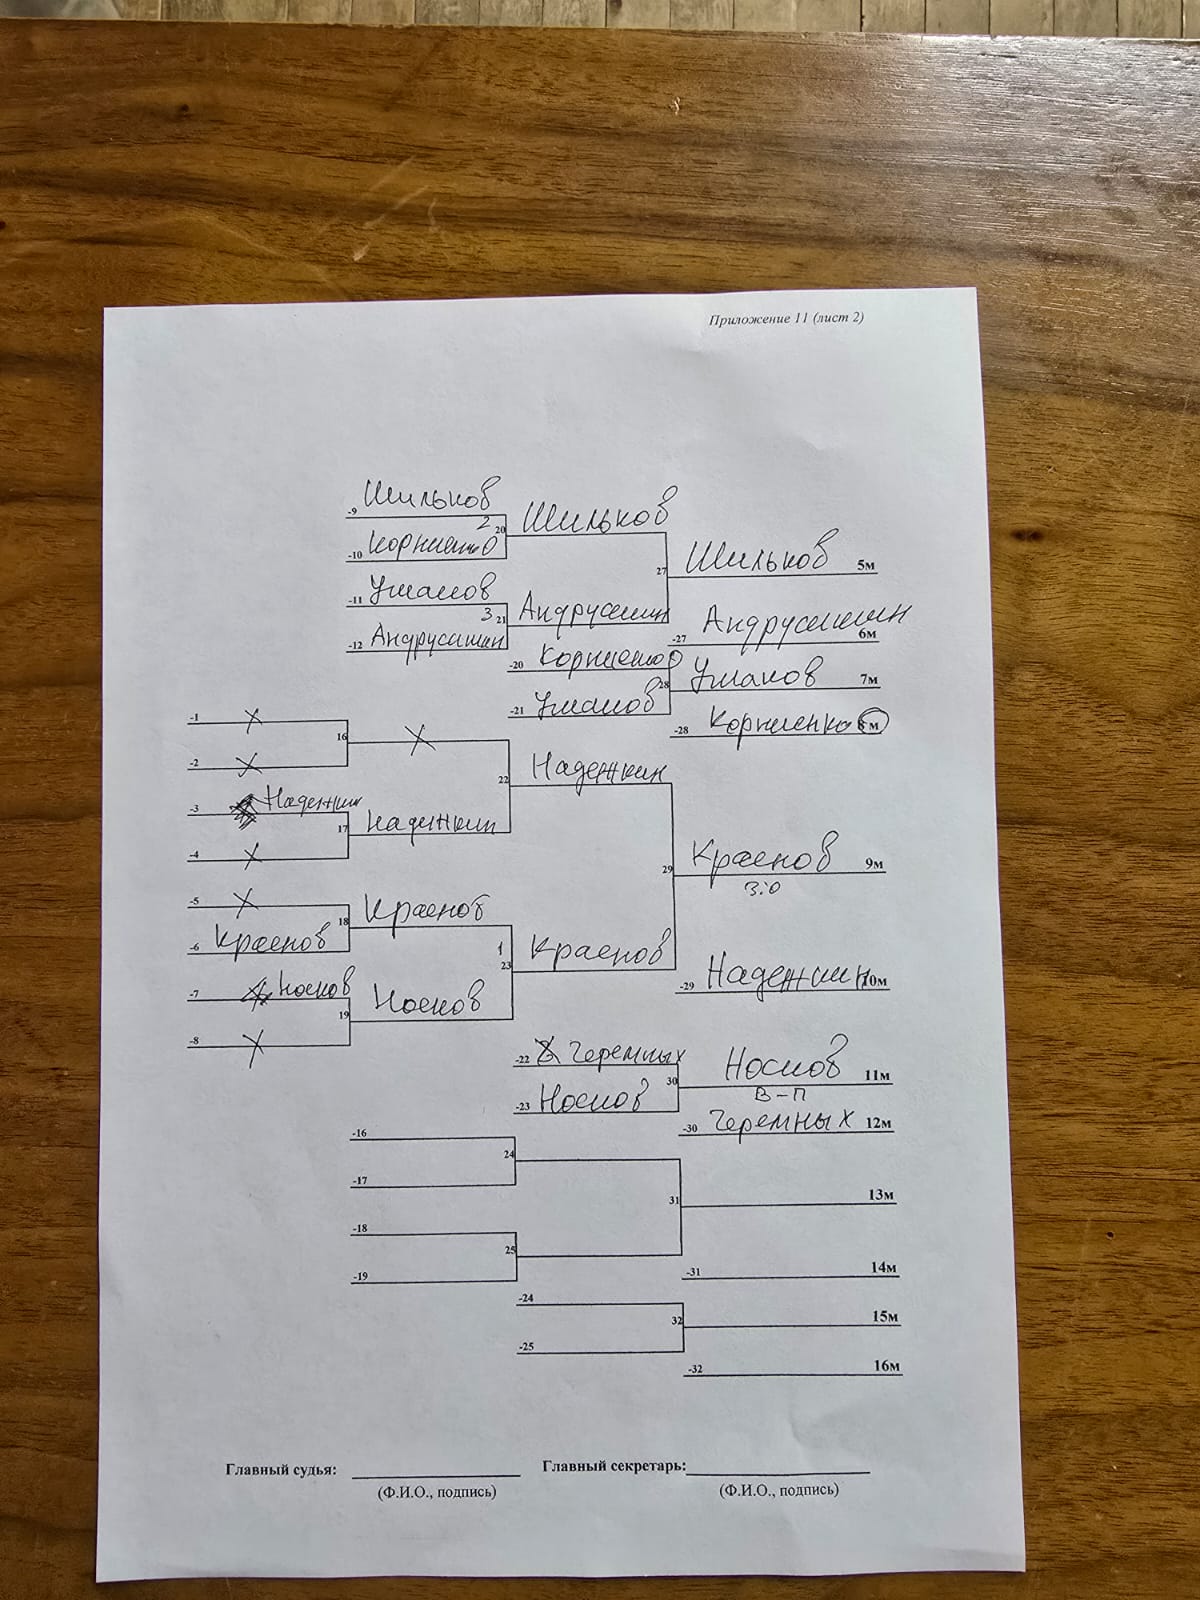 Приложение 11 (лист 2)
-9 Шильков
2 20 Шильков
-10 Корниенко
27 Шильков 5м
-11 Ушаков
3 21 Андрусишин
-12 Андрусишин
-27 Андрусишин 6м
-20 Корниенко
28 Ушаков 7м
-21 Ушаков
-28 Корниенко 8м
-1 X
16 X
-2 X
22 Надежкин
-3 Надежкин
17 Надежкин
-4 X
29 Краснов 9м
3:0
-5 X
18 Краснов
-6 Краснов
1 23 Краснов
-7 Носков
19 Носков
-8 X
-29 Надежкин 10м
-22 Черемных
30 Носков 11м
В-П
-23 Носков
-30 Черемных 12м
-16
24
-17
31 13м
-18
25
-19
-31 14м
-24
32 15м
-25
-32 16м
Главный судья: Главный секретарь:
(Ф.И.О., подпись) (Ф.И.О., подпись)